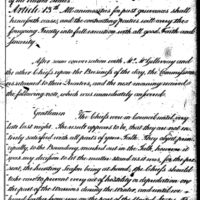 Article 13th. All animosities for past grievances shall
henceforth cease; and the contracting parties will carry the
foregoing Treaty into full execution with all good Faith and
Sincerity.
After some conversation with Mr. McGillivray and
the other Chiefs upon the business of the day, the Commissioners
returned to their Quarters, and the next morning received
the following note, which was immediately answered.
Gentlemen The Chiefs were in Council until very
late last night. The result appears to be, that they are not en-
tirely satisfied with all parts of the Talk. They object prin-
cipally to the Boundary, marked out in the Talk, however it
was my decision to let the matter stand as it was, for the pre-
sent, the hunting Season being at hand, the Chiefs should
take care to prevent every act of hostility or depredation on
the part of the
during the Winter, and until we